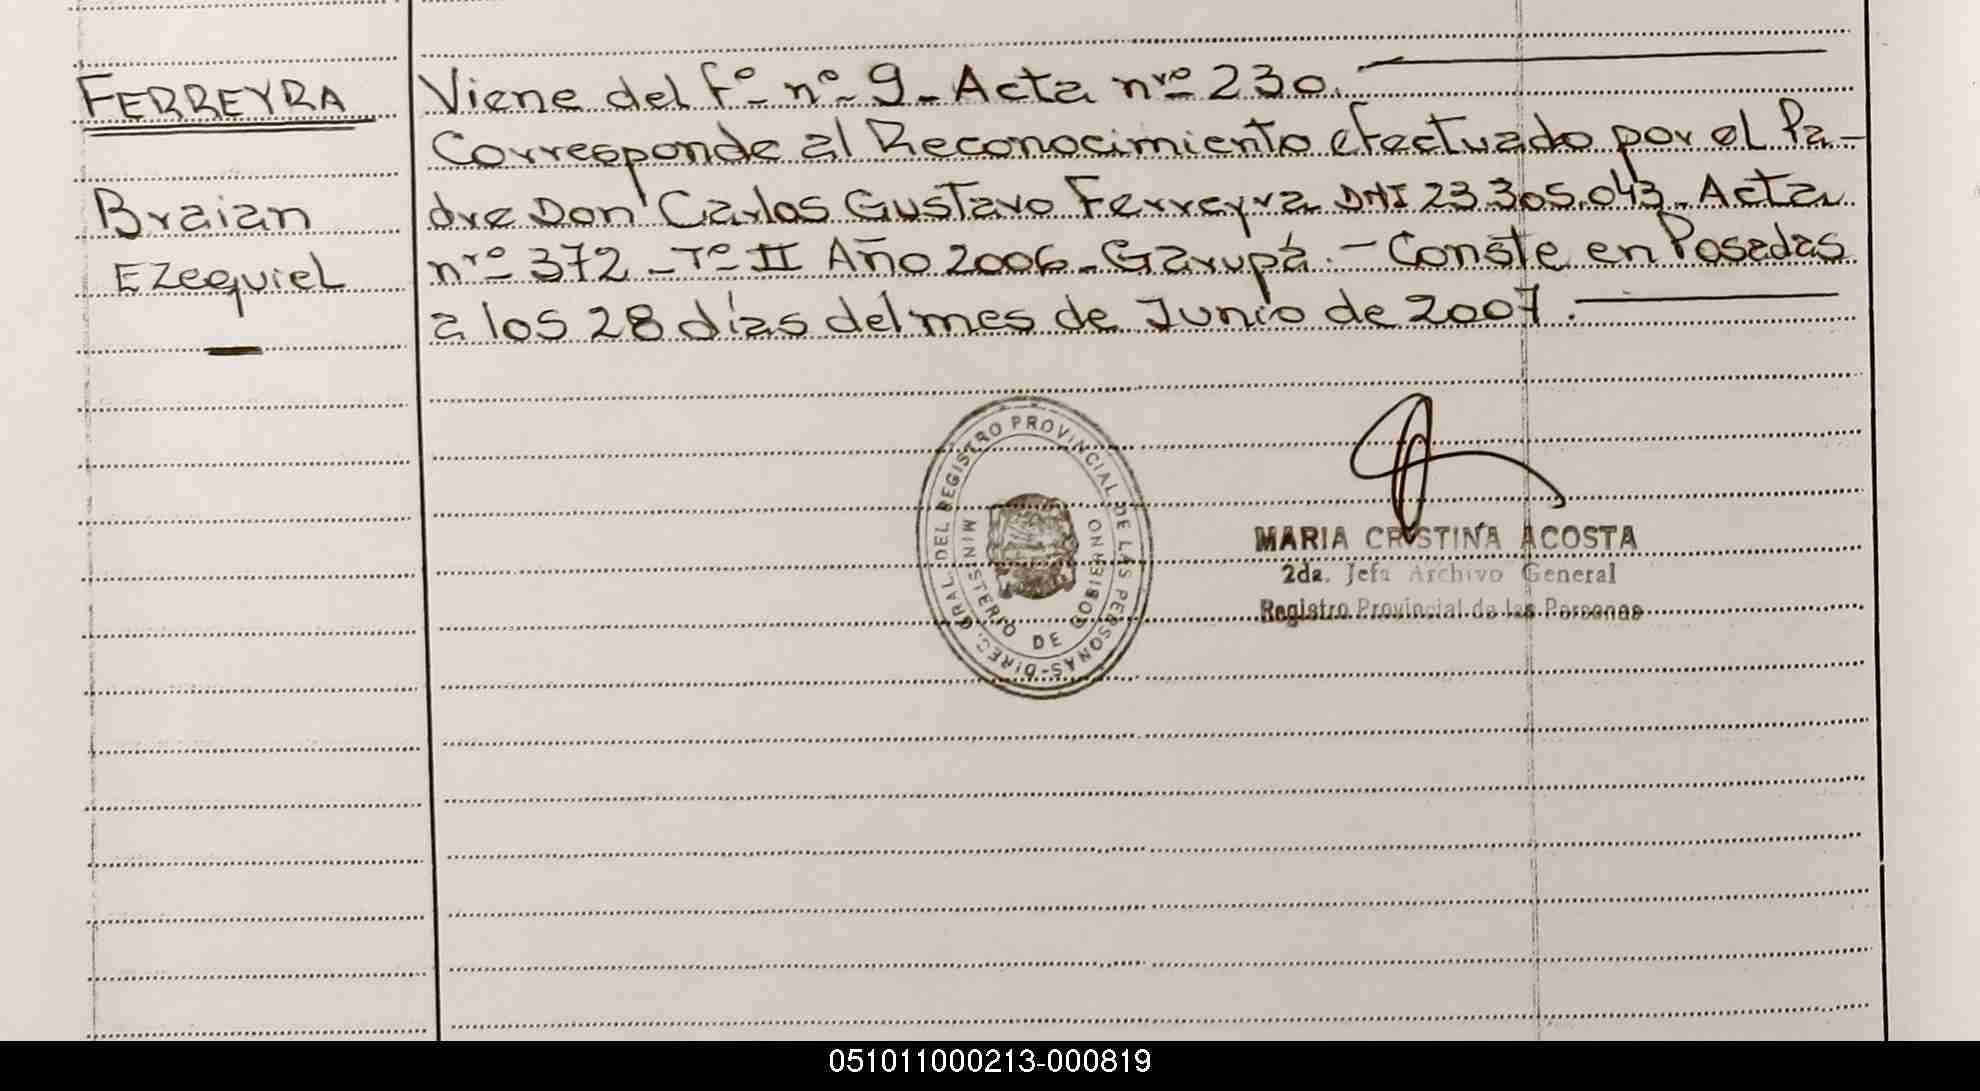 FERREYRA
Braian
Ezequiel
Viene del Fº nº 9 - Acta nrº 230.
Corresponde al Reconocimiento efectuado por el Pa-
dre Don Carlos Gustavo Ferreyra DNI 23.305.043. Acta
nrº 372 - Tº II Año 2006 - Garupá. - Conste en Posadas
a los 28 días del mes de Junio de 2007.
DIREC. GRAL. DEL REGISTRO PROVINCIAL DE LAS PERSONAS -
MINISTERIO DE GOBIERNO
MARIA CRISTINA ACOSTA
2da. Jefa Archivo General
Registro Provincial de las Personas
051011000213-000819